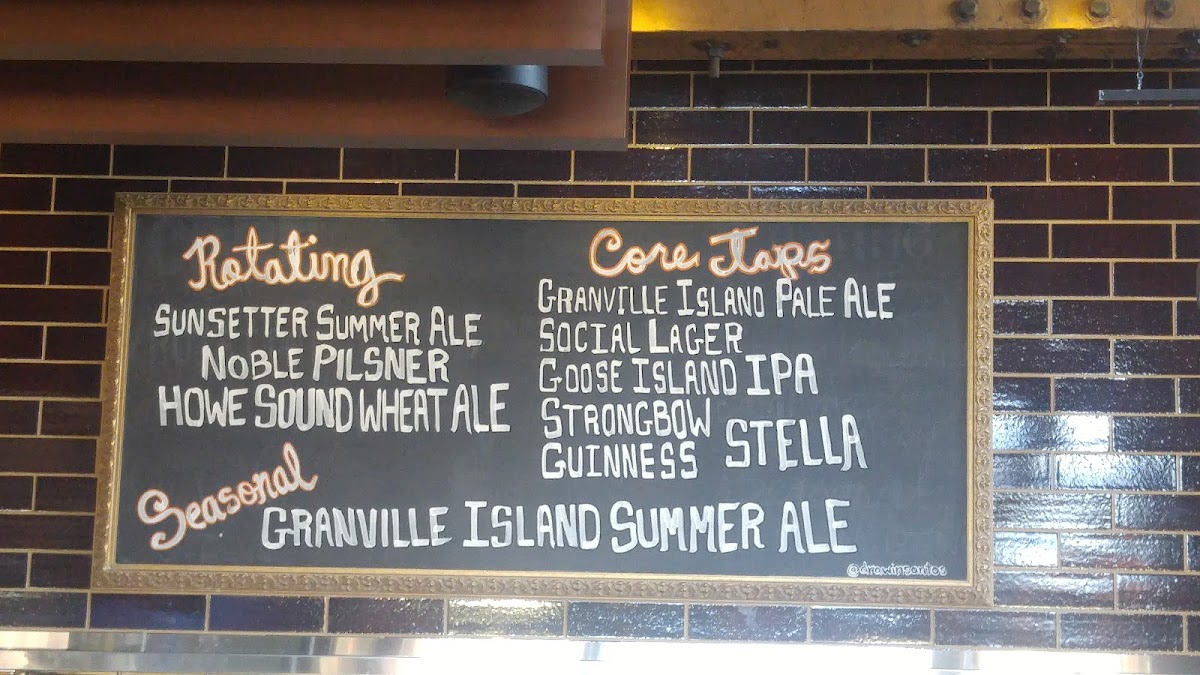 Rotating
SUNSETTER SUMMER ALE
NOBLE PILSNER
HOWE SOUND WHEAT ALE
Core Taps
GRANVILLE ISLAND PALE ALE
SOCIAL LAGER
GOOSE ISLAND IPA
STRONGBOW
GUINNESS
STELLA
Seasonal
GRANVILLE ISLAND SUMMER ALE
@drawinsantos